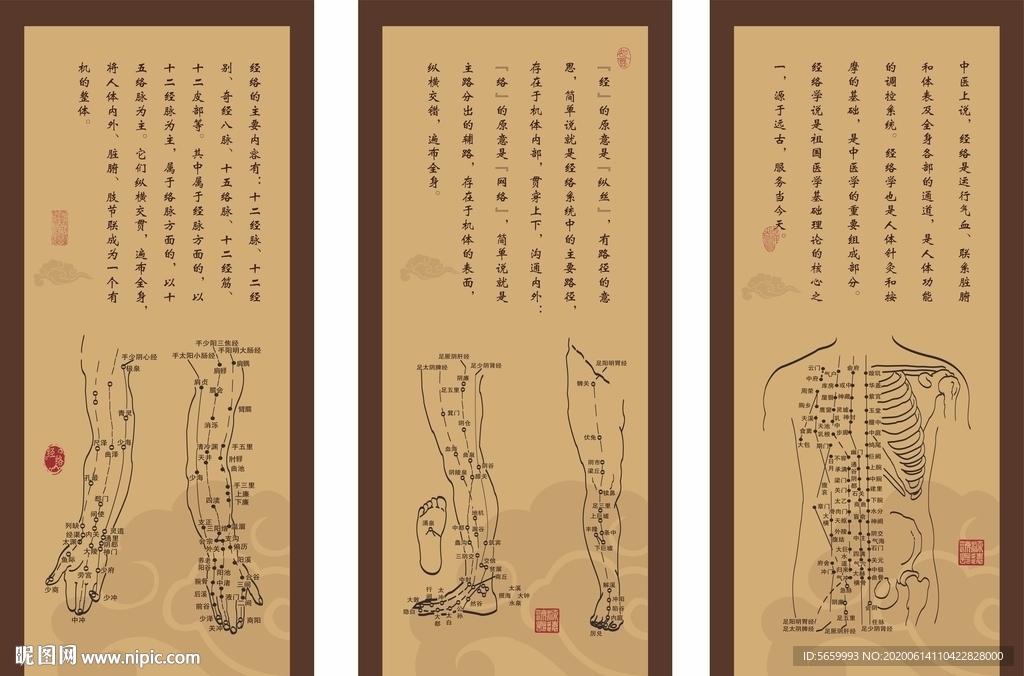 中医上说，经络是运行气血、联系脏腑
和体表及全身各部的通道，是人体功能
的调控系统。经络学也是人体针灸和按
摩的基础，是中医学的重要组成部分。
经络学说是祖国医学基础理论的核心之
一，源于远古，服务当今天。
『经』的原意是『纵丝』，有路径的意
思，简单说就是经络系统中的主要路径，
存在于机体内部，贯穿上下，沟通内外；
『络』的原意是『网络』，简单说就是
主路分出的辅路，存在于机体的表面，
纵横交错，遍布全身。
经络的主要内容有：十二经脉、十二经
别、奇经八脉、十五络脉、十二经筋、
十二皮部等。其中属于经脉方面的，以
十二经脉为主，属于络脉方面的，以十
五络脉为主。它们纵横交贯，遍布全身，
将人体内外、脏腑、肢节联成为一个有
机的整体。
手少阴心经
极泉
青灵
尺泽
少海
曲泽
孔最
郄门
间使
列缺
经渠
内关
灵道
通里
太渊
大陵
阴郄
神门
鱼际
劳宫
少府
少商
少冲
中冲
手少阳三焦经
手阳明大肠经
手太阳小肠经
肩髃
肩髎
肩贞
臑会
臂臑
消泺
清冷渊
手五里
天井
肘髎
曲池
少海
手三里
上廉
下廉
四渎
支正
三阳络
温溜
会宗
支沟
外关
偏历
养老
阳谷
阳溪
阳池
腕骨
中渚
合谷
三间
后溪
液门
二间
前谷
少泽
关冲
商阳
足厥阴肝经
足太阴脾经
足少阴肾经
阴廉
足五里
箕门
阴包
血海
曲泉
阴谷
阴陵泉
膝关
地机
中都
漏谷
蠡沟
筑宾
三阴交
交信
复溜
中封
商丘
太溪
大钟
水泉
照海
然谷
行间
太冲
大敦
隐白
大都
太白
公孙
涌泉
足阳明胃经
髀关
伏兔
阴市
梁丘
犊鼻
足三里
上巨虚
丰隆
条中
下巨虚
解溪
冲阳
陷谷
内庭
厉兑
云门
中府
气户
俞府
璇玑
周荣
库房
或中
华盖
屋翳
神藏
紫宫
胸乡
膺窗
灵墟
玉堂
天溪
天池
乳中
神封
膻中
食窦
乳根
步廊
中庭
大包
期门
鸠尾
日月
不容
幽门
巨阙
承满
上脘
梁门
中脘
腹哀
关门
建里
太乙
石关
下脘
章门
滑肉门
商曲
水分
天枢
神阙
大横
外陵
阴交
腹结
气海
大巨
石门
水道
四满
关元
府舍
归来
中极
冲门
气冲
横骨
曲骨
急脉
阴廉
会阴
足五里
任脉
足阳明胃经
足太阴脾经
足厥阴肝经
足少阴肾经
经络
昵图网 www.nipic.com
ID:5659993 NO:20200614110422828000